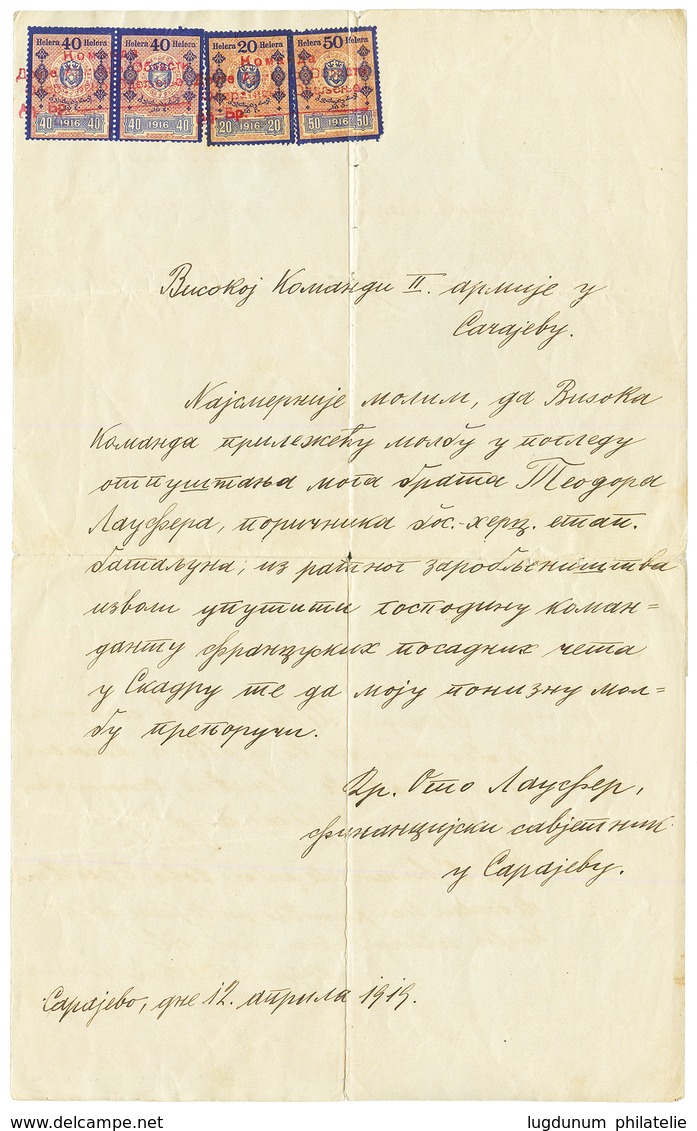 Helera 40 Helera Helera 40 Helera Helera 20 Helera Helera 50 Helera
40 1916 40 40 1916 40 20 1916 20 50 1916 50
Високој Команди II. армије у
Сарајеву.
Најсмерније молим, да Висока
Команда прилежећу молбу у погледу
отпуштања мога брата Теодора
Лауфера, поричника бос.-херц. етап.
батаљуна, из ратног заробљеништва
изволи упутити господину коман=
данту француских посадних чета
у Скадру те да моју понизну мол=
бу препоручи.
Др. Ото Лауфер,
финанцијски савјетник
у Сарајеву.
Сарајево, дне 12. априла 1919.
www.delcampe.net lugdunum philatelie